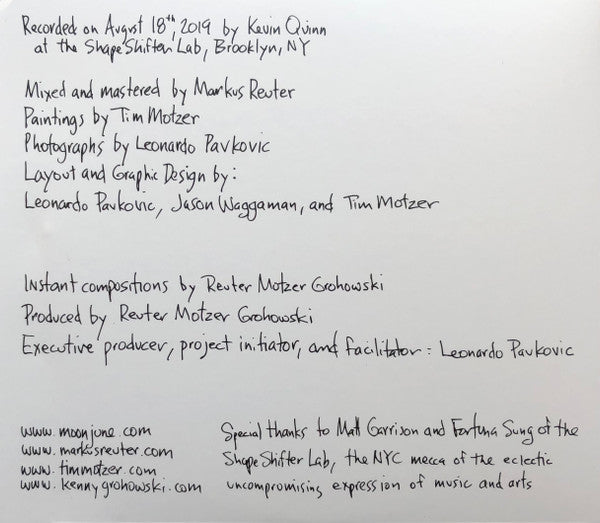 Recorded on August 18th, 2019 by Kevin Quinn
at the ShapeShifter Lab, Brooklyn, NY
Mixed and mastered by Markus Reuter
Paintings by Tim Motzer
Photographs by Leonardo Pavkovic
Layout and Graphic Design by:
Leonardo Pavkovic, Jason Waggaman, and Tim Motzer
Instant compositions by Reuter Motzer Grohowski
Produced by Reuter Motzer Grohowski
Executive producer, project initiator, and facilitator: Leonardo Pavkovic
www.moonjune.com
www.markusreuter.com
www.timmotzer.com
www.kennygrohowski.com
Special thanks to Matt Garrison and Fortuna Sung of the
ShapeShifter Lab, the NYC mecca of the eclectic
uncompromising expression of music and arts